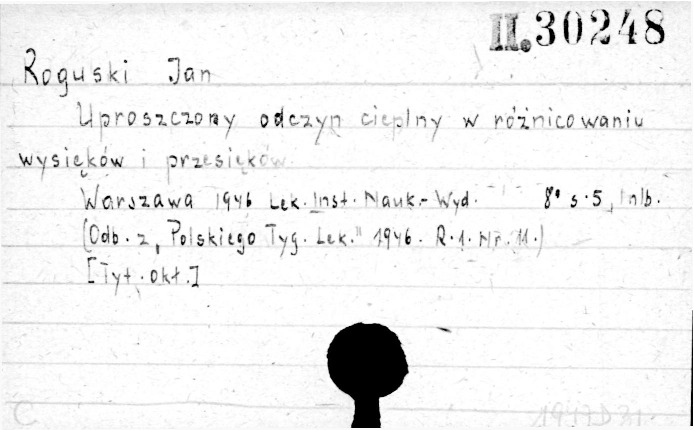 II. 30248
Roguski Jan
Uproszczony odczyn cieplny w różnicowaniu
wysięków i przesięków.
Warszawa 1946 Lek. Inst. Nauk.-Wyd. 8° s. 5, 1 nlb.
(Odb. z „Polskiego Tyg. Lek." 1946. R. 1. Nr. 11.)
[Tyt. okł.]
C